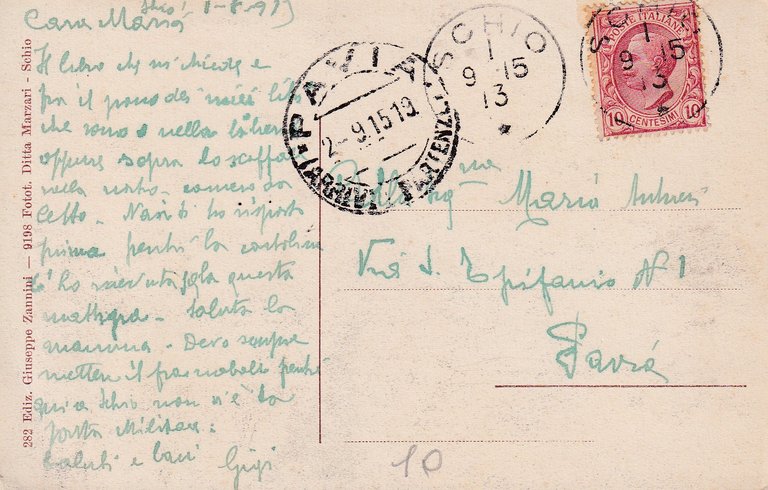 Schio 1-8-913
Cara Maria
Il libro che mi chiedi è
fra il pacco dei miei libri
che sono o nella
oppure sopra lo scaffale
nella
Non ti ho risposto
prima perché la cartolina
l'ho ricevuta solo questa
mattina. Saluta la
mamma. Devo sempre
mettere il francobollo perché
qui a Schio non v'è la
posta militare.
Saluti e baci Gigi
282 Ediz. Giuseppe Zannini — 9198 Fotot. Ditta Marzari - Schio
PAVIA
2-9.15 19
(ARRIVI PARTENZE)
SCHIO
1
9 15
13
*
SCHIO
1
9 15
13
POSTE ITALIANE
10 CENTESIMI 10
Sig.na Maria
Via S. Epifanio N 1
Pavia
10